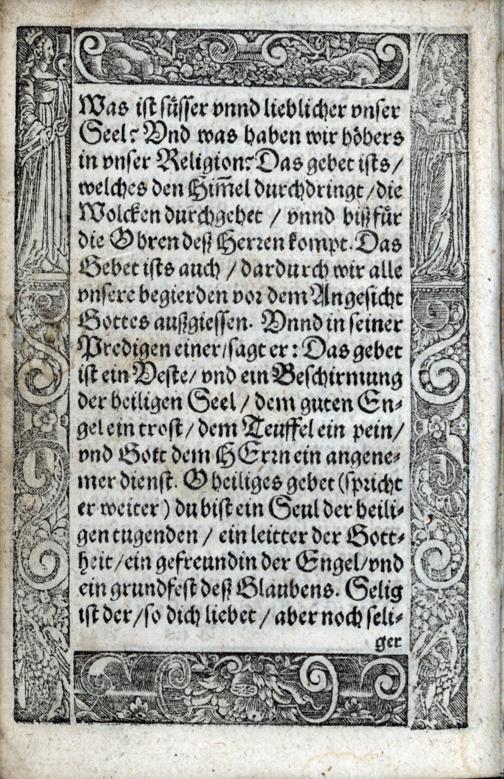 Was ist süsser vnnd lieblicher vnser
Seel? Vnd was haben wir höhers
in vnser Religion? Das gebet ists /
welches den Him̄el durchdringt / die
Wolcken durchgehet / vnnd biß für
die Ohren deß Herren kompt. Das
Gebet ists auch / dardurch wir alle
vnsere begierden vor dem Angesicht
Gottes außgiessen. Vnnd in seiner
Predigen einer / sagt er : Das gebet
ist ein Veste / vnd ein Beschirmung
der heiligen Seel / dem guten En⸗
gel ein trost / dem Teuffel ein pein /
vnd Gott dem HErrn ein angene⸗
mer dienst. O heiliges gebet (spricht
er weiter) du bist ein Seul der heili⸗
gen tugenden / ein leitter der Gott⸗
heit / ein gefreundin der Engel / vnd
ein grundfest deß Glaubens. Selig
ist der / so dich liebet / aber noch seli⸗
ger